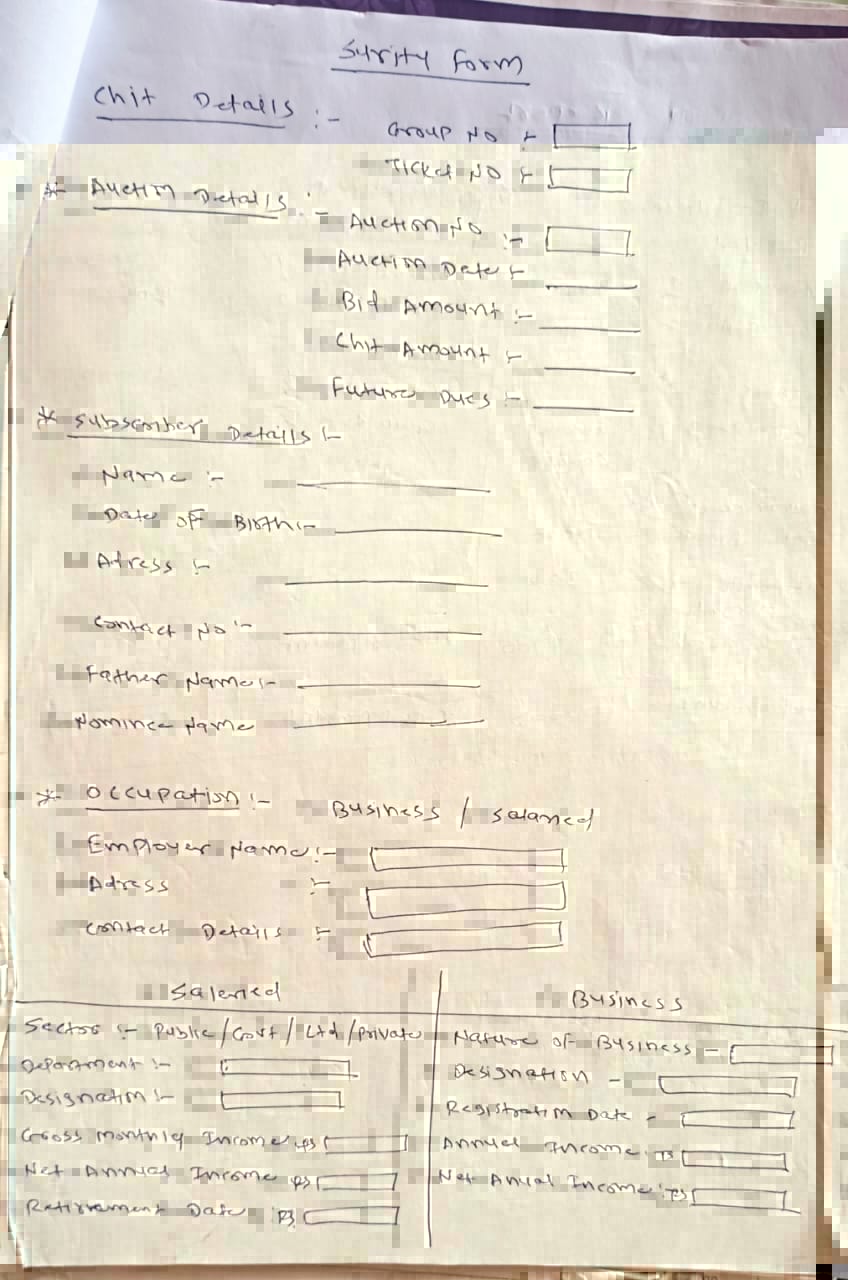 Surity Form
Chit Details :-
Group No :-
Ticket No :-
* Auction Details :-
Auction No :-
Auction Date :-
Bid Amount :-
Chit Amount :-
Future Dues :-
* Subscriber Details :-
Name :-
Date of Birth :-
Adress :-
Contact No :-
Father Name :-
Nominee Name
* Occupation :- Business / Salaried
Employer Name :-
Adress :-
Contact Details :-
Salaried
Sector :- Public / Govt / Ltd / Private
Department :-
Designation :-
Gross Monthly Income
Net Annual Income
Retirement Date
Business
Nature of Business -
Designation -
Registration Date -
Annual Income
Net Anual Income